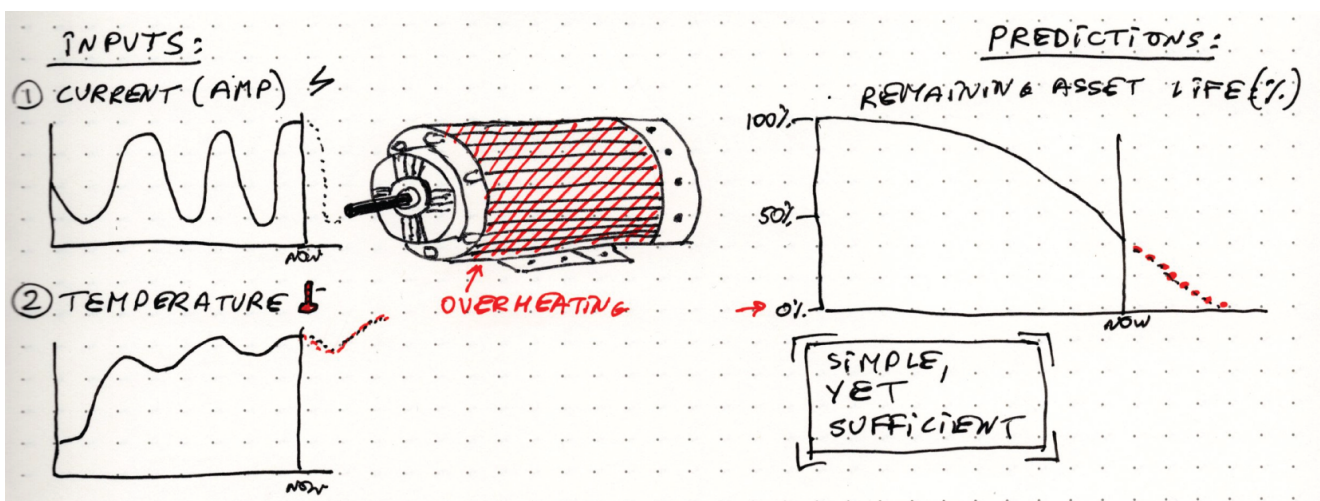 INPUTS:
① CURRENT (AMP)
NOW
② TEMPERATURE
NOW
OVERHEATING
PREDICTIONS:
REMAINING ASSET LIFE (%)
100%
50%
0%
NOW
SIMPLE,
YET
SUFFICIENT